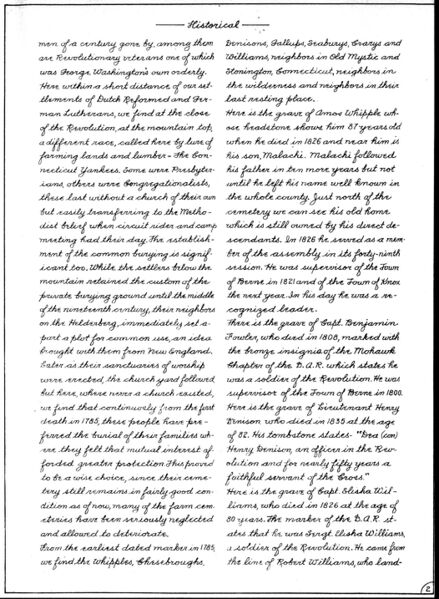 Historical
men of a century gone by, among them
are Revolutionary veterans one of which
was George Washington's own orderly.
Here within a short distance of our set-
tlements of Dutch Reformed and Ger-
man Lutherans, we find at the close
of the Revolution, at the mountain top,
a different race, called here by lure of
farming lands and lumber - The Con-
necticut Yankees. Some were Presbyter-
ians, others were Congregationalists,
these last without a church of their own
but easily transferring to the Metho-
dist belief when circuit rider and camp
meeting had their day. The establish-
ment of the common burying is signif-
icant too. While the settlers below the
mountain retained the custom of the
private burying ground until the middle
of the nineteenth century, their neighbors
on the Helderberg, immediately set a-
part a plot for common use, an idea
brought with them from New England.
Later as their sanctuaries of worship
were erected, the church yard followed
but here, where never a church existed,
we find that continuously from the first
death in 1785, these people have pre-
ferred the burial of their families wh-
ere they felt that mutual interest af-
forded greater protection. This proved
to be a wise choice, since their ceme-
tery still remains in fairly good con-
dition as of now, many of the farm cem-
eteries have been seriously neglected
and allowed to deteriorate.
From the earliest dated marker in 1785,
we find the Whipples, Chesebroughs,
Denisons, Gallups, Seaburys, Crarys and
Williams, neighbors in Old Mystic and
Stonington, Connecticut, neighbors in
the wilderness and neighbors in their
last resting place.
Here is the grave of Amos Whipple wh-
ose headstone shows him 87 years old
when he died in 1826 and near him is
his son, Malachi. Malachi followed
his father in ten more years but not
until he left his name well known in
the whole county. Just north of the
cemetery we can see his old home
which is still owned by his direct de-
scendants. In 1826 he served as a mem-
ber of the assembly in its forty-ninth
session. He was supervisor of the Town
of Berne in 1821 and of the Town of Knox
the next year. In his day he was a re-
cognized leader.
There is the grave of Capt. Benjamin
Fowler, who died in 1808, marked with
the bronze insignia of the Mohawk
Chapter of the D.A.R. which states he
was a soldier of the Revolution. He was
supervisor of the Town of Berne in 1800.
Here is the grave of Lieutenant Henry
Denison who died in 1835 at the age
of 82. His tombstone states - "Dea (con)
Henry Denison, an officer in the Rev-
olution and for nearly fifty years a
faithful servant of the Cross."
Here is the grave of Capt. Elisha Wil-
liams, who died in 1826 at the age of
80 years. The marker of the D.A.R. st-
ates that he was Sergt. Elisha Williams,
a soldier of the Revolution. He came from
the line of Robert Williams, who land-
2